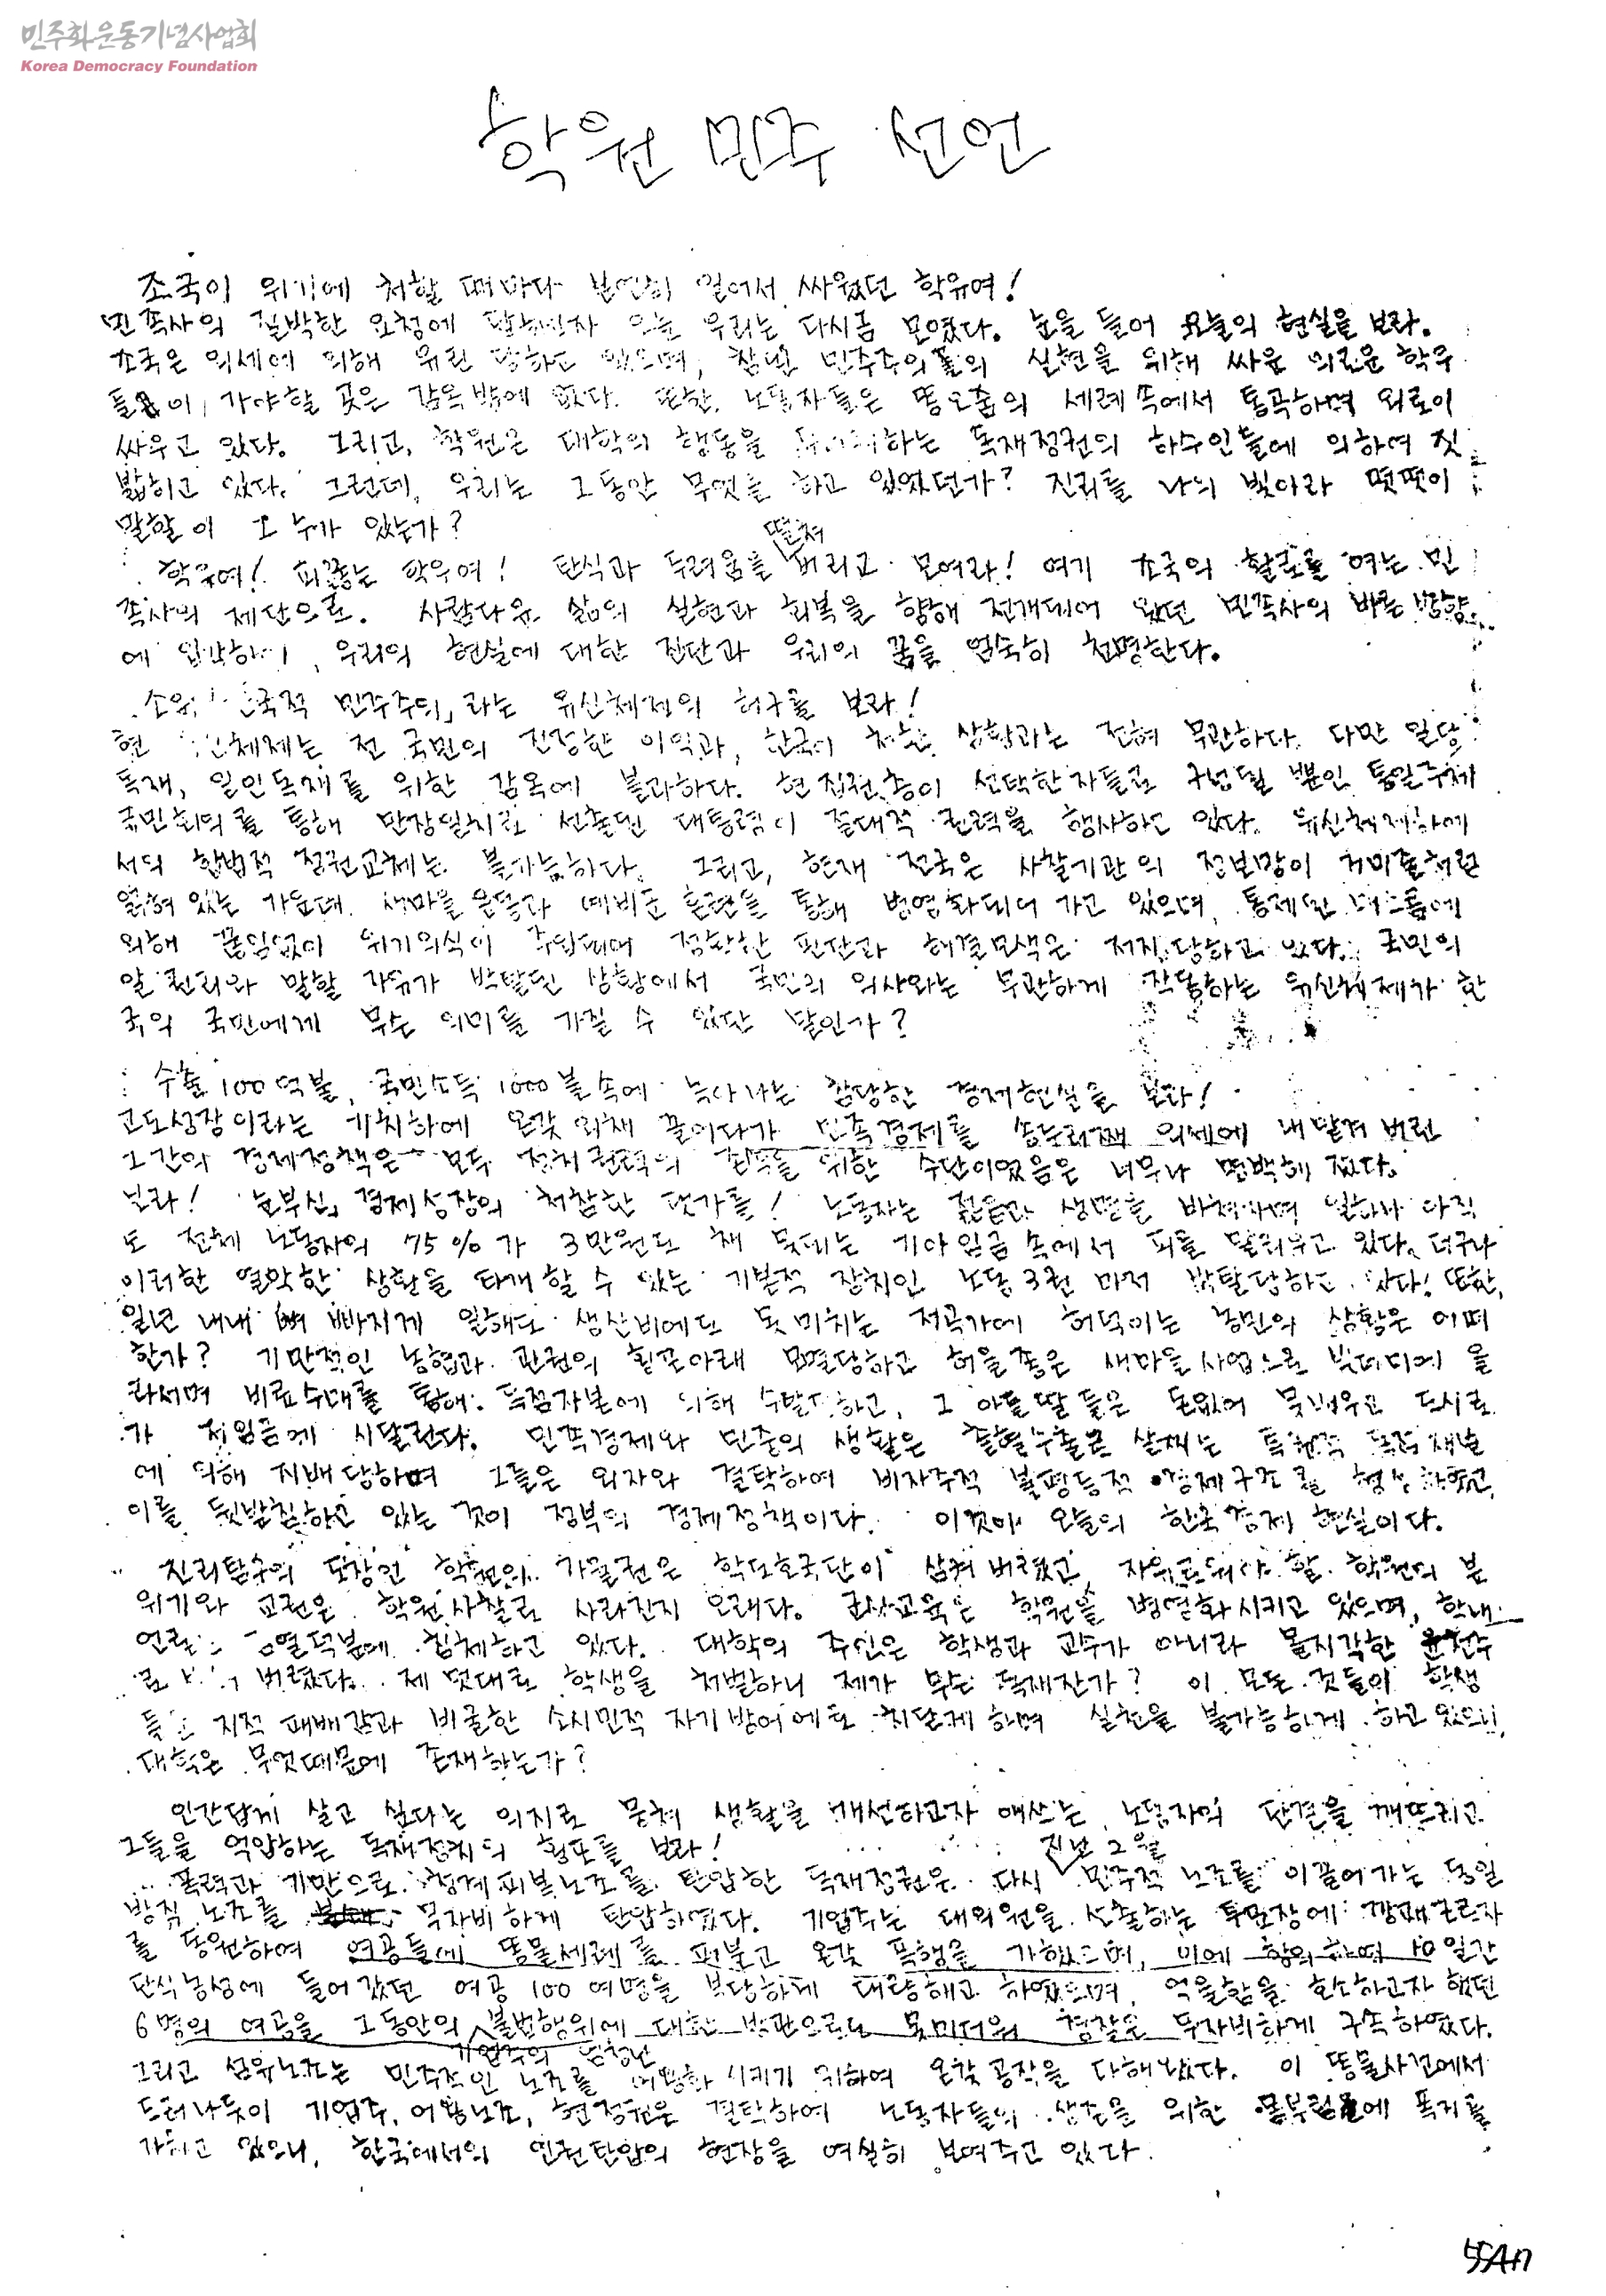 민주화운동기념사업회
Korea Democracy Foundation
학원 민주 선언
조국이 위기에 처할 때마다 분연히 일어서 싸워왔던 학우여!
민족사의 절박한 요청에 오늘 우리는 다시금 모였다. 눈을 들어 오늘의 현실을 보라.
조국은 외세에 의해 유린 당하고 있으며, 참된 민주주의의 실현을 위해 싸운 의로운 학우
들이 가야할 곳은 감옥밖에 없다. 또한, 노동자들은 똥오줌의 세례 속에서 통곡하며 외로이
싸우고 있다. 그리고, 학원은 대학의 행동을 하는 독재정권의 하수인들에 의하여 짓
밟히고 있다. 그런데, 우리는 그동안 무엇을 하고 있었던가? 진리를 나의 빛이라 떳떳이
말할 이 그 누가 있는가?
떨쳐
학우여! 피끓는 학우여! 탄식과 두려움을 버리고 모여라! 여기 조국의 활로를 여는 민
족사의 제단으로. 사람다운 삶의 실현과 회복을 향해 전개되어 왔던 민족사의 바른 방향
에 입각하여, 우리의 현실에 대한 진단과 우리의 꿈을 엄숙히 천명한다.
소위 국적 민주주의」라는 유신체제의 허구를 보라!
현 체제는 전 국민의 진정한 이익과, 한국이 처한 상황과는 전혀 무관하다. 다만 일당
독재, 일인독재를 위한 감옥에 불과하다. 현 집권층이 선택한 자들로 구성될 뿐인 통일주체
국민회의를 통해 만장일치로 선출된 대통령이 절대적 권력을 행사하고 있다. 유신체제하에
서의 합법적 정권교체는 불가능하다. 그리고, 현재 전국은 사찰기관의 정보망이 거미줄처럼
얽혀 있는 가운데 새마을운동과 예비군 훈련을 통해 병영화되어 가고 있으며, 통제된 매스콤에
의해 끊임없이 위기의식이 주입되어 정확한 판단과 해결모색은 저지당하고 있다. 국민의
알 권리와 말할 자유가 박탈된 상황에서 국민의 의사와는 무관하게 작동하는 유신체제가 한
국의 국민에게 무슨 의미를 가질 수 있단 말인가?
수출 100억불, 국민소득 1000불 속에 녹아나는 참담한 경제현실을 보라!
고도성장이라는 기치하에 온갖 외채 끌어다가 민족경제를 송두리째 외세에 내맡겨 버린
그간의 경제정책은 모두 정치권력의 획득을 위한 수단이었음은 너무나 명백해졌다.
보라! 눈부신 경제성장의 처참한 댓가를! 노동자는 젊음과 생명을 바쳐가며 일하나 아직
도 전체 노동자의 75%가 3만원도 채 못되는 기아임금 속에서 피를 말리우고 있다. 더구나
이러한 열악한 상황을 타개할 수 있는 기본적 장치인 노동3권 마저 박탈당하고 있다! 또한,
일년 내내 뼈 빠지게 일해도 생산비에도 못미치는 저곡가에 허덕이는 농민의 상황은 어떠
한가? 기만적인 농협과 관권의 횡포아래 모멸당하고 허울좋은 새마을사업으로 빚더미에 올
라서며 비료수매를 통해 독점자본에 의해 수탈당하고, 그 아들딸들은 돈없어 못배우고 도시로
가 저임금에 시달린다. 민족경제와 민중의 생활은 재벌
에 의해 지배당하며 그들은 외자와 결탁하여 비자주적 불평등적 경제구조를 형성하였고,
이를 뒷받침하고 있는 것이 정부의 경제정책이다. 이것이 오늘의 한국경제 현실이다.
진리탐구의 도장인 학원의 자율권은 학도호국단이 삼켜 버렸고, 자유로워야 할 학원의 분
위기와 교권은 학원사찰로 사라진지 오래다. 군사교육은 학원을 병영화시키고 있으며, 학내
언론은 검열덕분에 침체하고 있다. 대학의 주인은 학생과 교수가 아니라 몰지각한
로 버렸다. 제 멋대로 학생을 처벌하니 제가 무슨 독재잔가? 이 모든 것들이 학생
들은 지적 패배감과 비굴한 소시민적 자기방어에로 치닫게 하며 실천을 불가능하게 하고 있으니,
대학은 무엇때문에 존재하는가?
인간답게 살고 싶다는 의지로 뭉쳐 생활을 개선하고자 애쓰는 노동자의 단결을 깨뜨리고
그들을 억압하는 독재정치의 횡포를 보라!
지난 2월
폭력과 기만으로 청계피복노조를 탄압한 독재정권은 다시 민주적 노조를 이끌어가는 동일
방직 노조를 무자비하게 탄압하였다. 기업주는 대의원을 선출하는 투표장에 깡패근로자
를 동원하여 여공들에 똥물세례를 퍼붓고 온갖 폭행을 가했으며, 이에 항의하며 10일간
단식농성에 들어갔던 여공 100여명을 부당하게 대량해고 하였으며, 억울함을 호소하고자 했던
6명의 여공을 그동안의 불법행위에 대한 방관으로도 못미더워 경찰은 무자비하게 구속하였다.
기업주의
그리고 섬유노조는 민주적인 노조를 어용화 시키기 위하여 온갖 공작을 다해왔다. 이 똥물사건에서
드러나듯이 기업주, 어용노조, 현정권은 결탁하여 노동자들의 생존을 위한 몸부림에 폭거를
가하고 있으니, 한국에서의 인권탄압의 현장을 여실히 보여주고 있다.